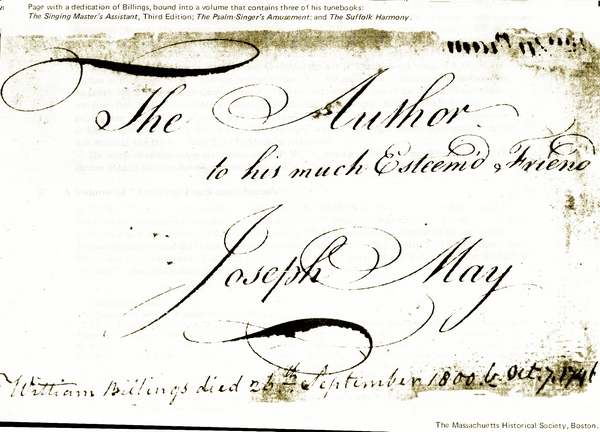 Page with a dedication of Billings, bound into a volume that contains three of his tunebooks:
The Singing Master's Assistant, Third Edition; The Psalm-Singer's Amusement; and The Suffolk Harmony.
The Author
to his much Esteem'd Friend
Joseph May
William Billings died 26th September 1800 b. Oct. 7. 1746
The Massachuetts Historical Society, Boston.